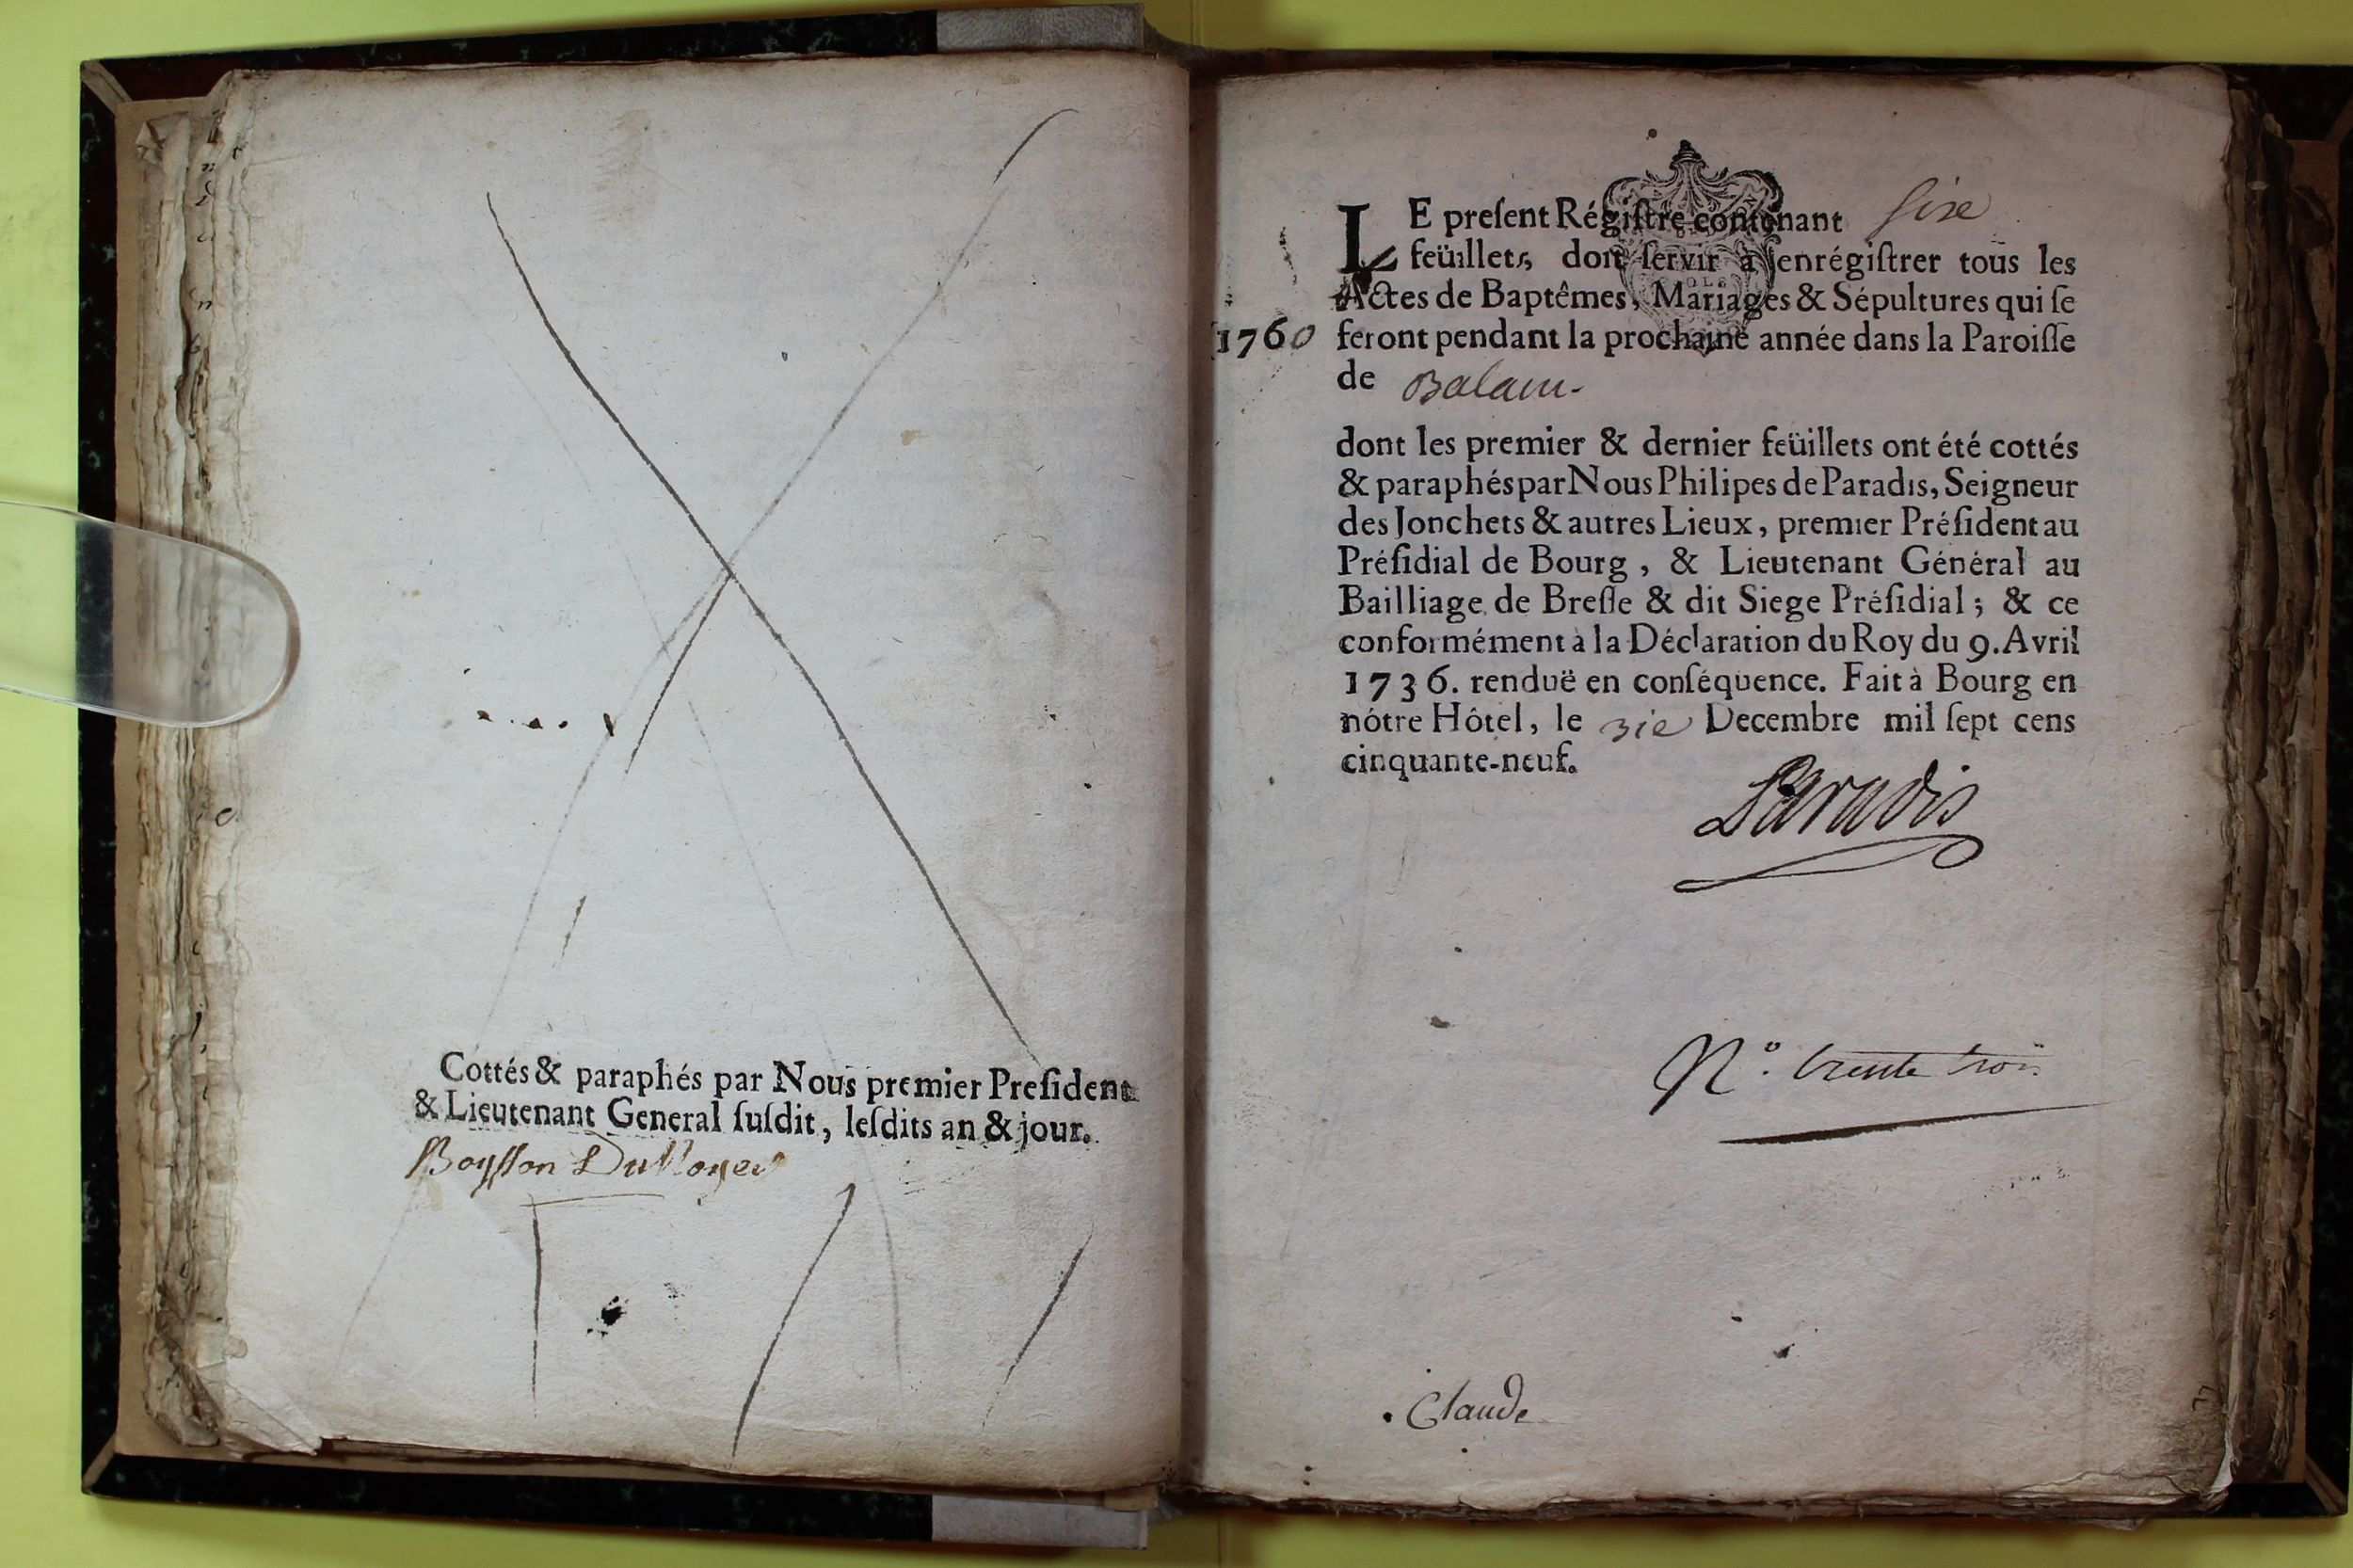 Cottés & paraphés par Nous premier Preſident
& Lieutenant General ſuſdit, leſdits an & jour.
Boysson
LE preſent Régiſtre contenant ſixe
feüillets, doit ſervir à enrégiſtrer tous les
Actes de Baptêmes, Mariages & Sépultures qui ſe
1760 feront pendant la prochaine année dans la Paroiſſe
de Balam
dont les premier & dernier feüillets ont été cottés
& paraphés par Nous Philipes de Paradis, Seigneur
des Jonchets & autres Lieux, premier Préſident au
Préſidial de Bourg, & Lieutenant Général au
Bailliage de Breſſe & dit Siege Préſidial; & ce
conformément à la Déclaration du Roy du 9. Avril
1736. renduë en conſéquence. Fait à Bourg en
nôtre Hôtel, le Decembre mil ſept cens
cinquante-neuf.
Paradis
N.º trente trois
Claude